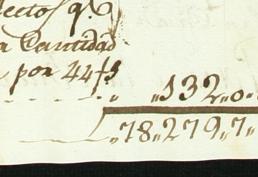 ectos q.e
a Cantidad
por 44fs
132,,0
78,,279,,7